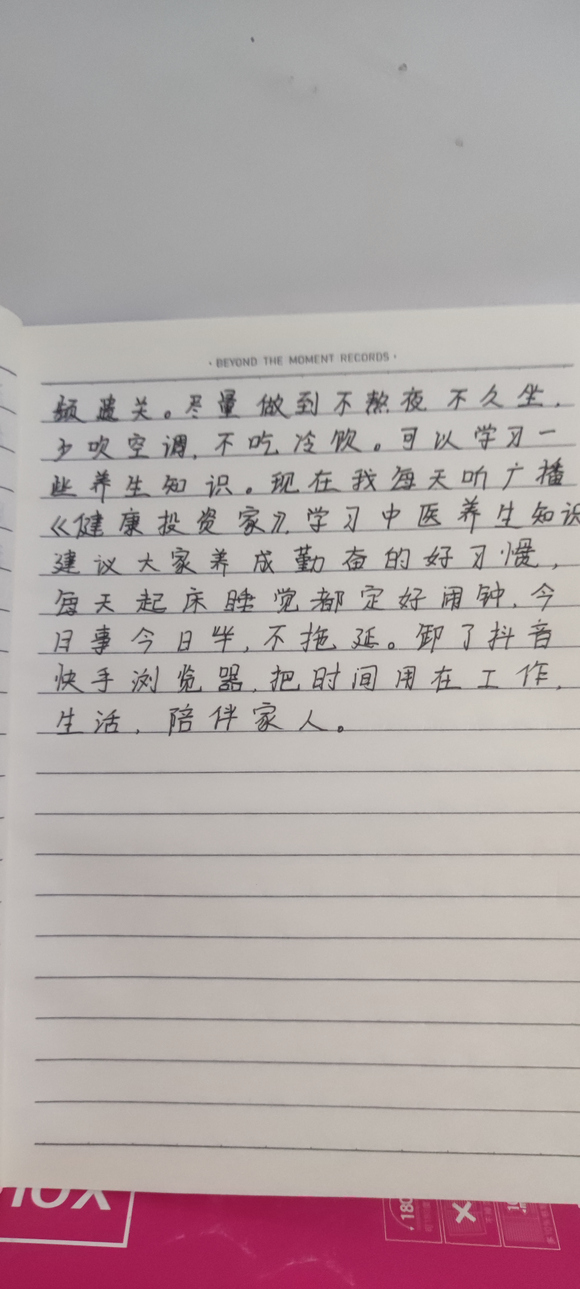 · BEYOND THE MOMENT RECORDS ·
频遗关。尽量做到不熬夜不久坐,
少吹空调,不吃冷饮。可以学习一
些养生知识。现在我每天听广播
《健康投资家》,学习中医养生知识
建议大家养成勤奋的好习惯,
每天起床睡觉都定好闹钟,今
日事今日毕,不拖延。卸了抖音
快手浏览器,把时间用在工作,
生活,陪伴家人。
180